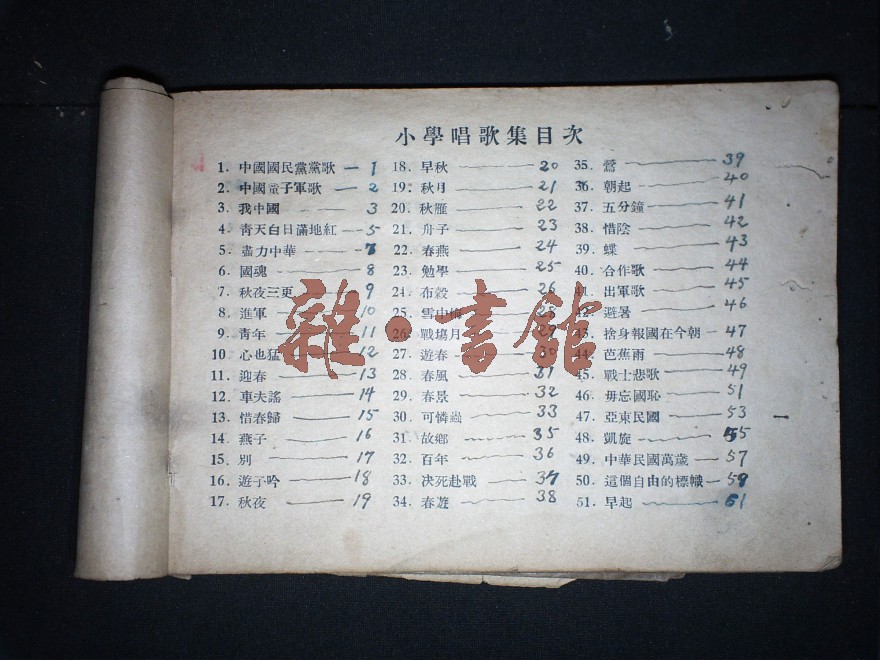 小學唱歌集目次
1. 中國國民黨黨歌 — 1
2. 中國童子軍歌 — 2
3. 我中國 — 3
4. 靑天白日滿地紅 — 5
5. 盡力中華 — 7
6. 國魂 — 8
7. 秋夜三更 — 9
8. 進軍 — 10
9. 靑年 — 11
10. 心也猛 — 12
11. 迎春 — 13
12. 車夫謠 — 14
13. 惜春歸 — 15
14. 燕子 — 16
15. 別 — 17
16. 遊子吟 — 18
17. 秋夜 — 19
18. 早秋 — 20
19. 秋月 — 21
20. 秋雁 — 22
21. 舟子 — 23
22. 春燕 — 24
23. 勉學 — 25
24. 布穀 — 26
25. 雪中梅 — 28
26. 戰場月 — 29
27. 遊春 — 30
28. 春風 — 31
29. 春景 — 32
30. 可憐蟲 — 33
31. 故鄉 — 35
32. 百年 — 36
33. 決死赴戰 — 37
34. 春遊 — 38
35. 鶯 — 39
36. 朝起 — 40
37. 五分鐘 — 41
38. 惜陰 — 42
39. 蝶 — 43
40. 合作歌 — 44
41. 出軍歌 — 45
42. 避暑 — 46
43. 捨身報國在今朝 — 47
44. 芭蕉雨 — 48
45. 戰士悲歌 — 49
46. 毋忘國恥 — 51
47. 亞東民國 — 53
48. 凱旋 — 55
49. 中華民國萬歲 — 57
50. 這個自由的標幟 — 59
51. 早起 — 61
雜·書館